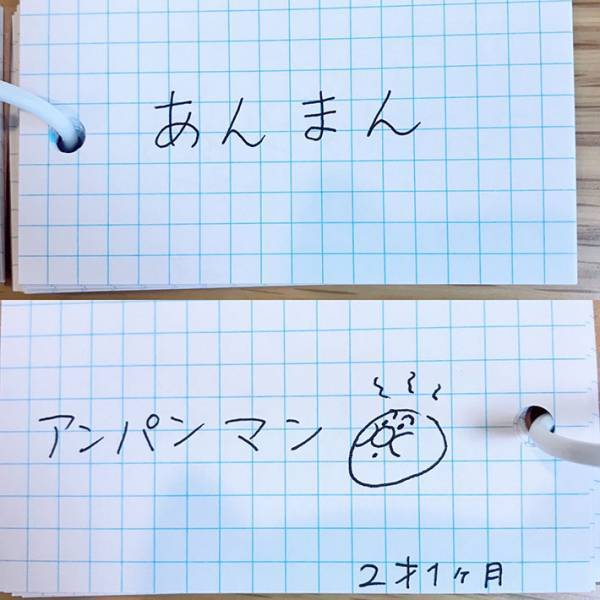 あんまん
アンパンマン
2才1ヶ月